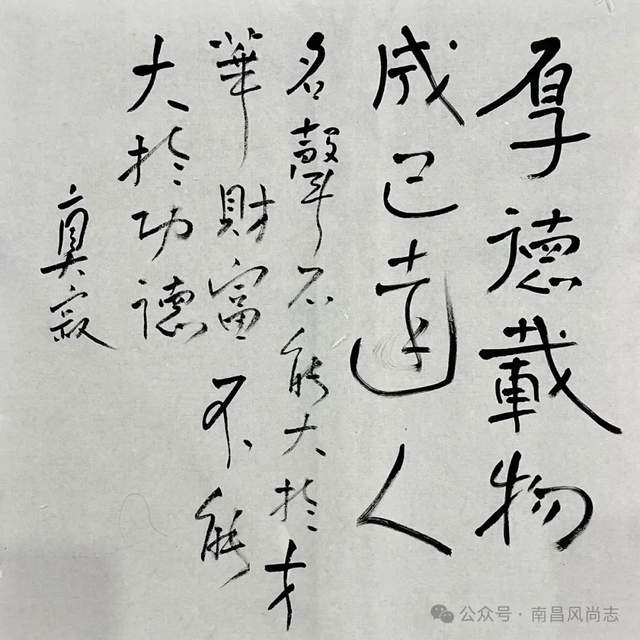 厚德載物
成己達人
名聲不能大於才
華財富不能
大於功德
寂
公众号·南昌风尚志